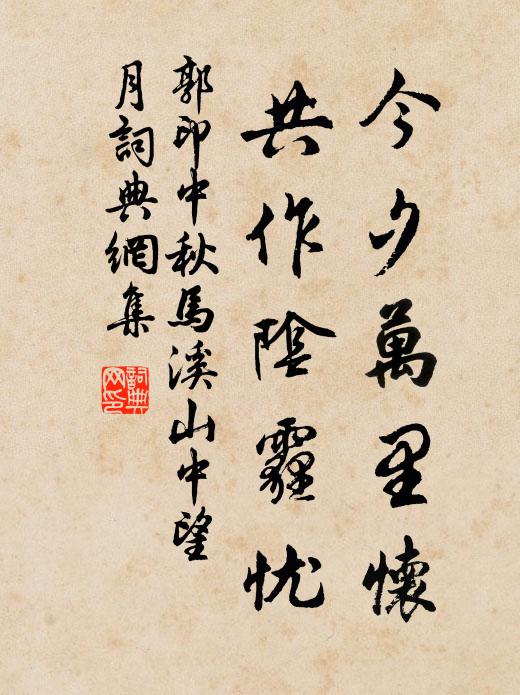 今夕萬里懷
共作陰霾忧
郭印中秋馬溪山中望
月詞典網集
詞典
网印